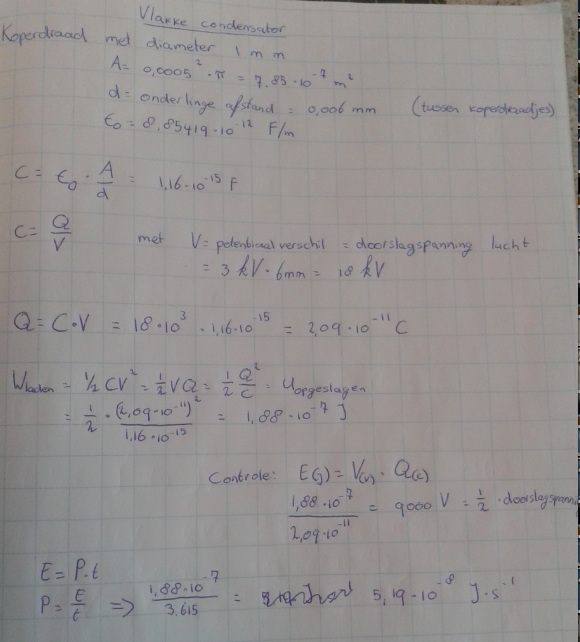 Vlakke condensator
Koperdraad met diameter 1 mm
A = 0,0005² · π = 7,85 · 10⁻⁷ m²
d = onderlinge afstand = 0,006 mm (tussen koperdraadjes)
ε₀ = 8,85419 · 10⁻¹² F/m
C = ε₀ · A/d = 1,16 · 10⁻¹⁵ F
C = Q/V met V = potentiaal verschil = doorslagspanning lucht
= 3 kV · 6mm = 18 kV
Q = C · V = 18 · 10³ · 1,16 · 10⁻¹⁵ = 2,09 · 10⁻¹¹ C
Wladen = ½ CV² = ½ VQ = ½ Q²/C = Uopgeslagen
= ½ · (2,09 · 10⁻¹¹)²/1,16 · 10⁻¹⁵ = 1,88 · 10⁻⁷ J
Controle: E(J) = V(V) · Q(C)
1,88 · 10⁻⁷/2,09 · 10⁻¹¹ = 9000 V = ½ · doorslagspanni
E = P · t
P = E/t => 1,88 · 10⁻⁷/3,615 = 5,19 · 10⁻⁸ J · s⁻¹